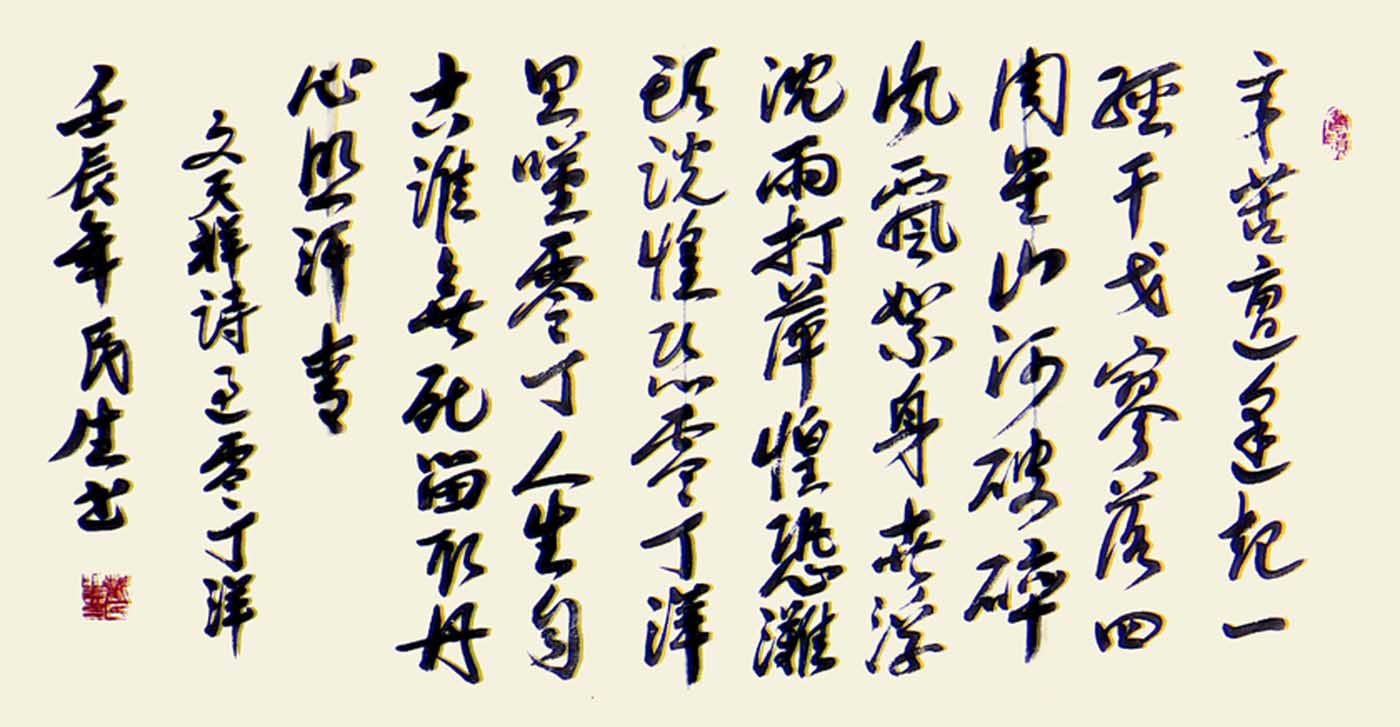 辛苦遭逢起一
經干戈寥落四
周星山河破碎
風飄絮身世浮
沈雨打萍惶恐灘
頭說惶恐零丁洋
里嘆零丁人生自
古誰無死留取丹
心照汗青
文天祥詩過零丁洋
壬辰年民生书